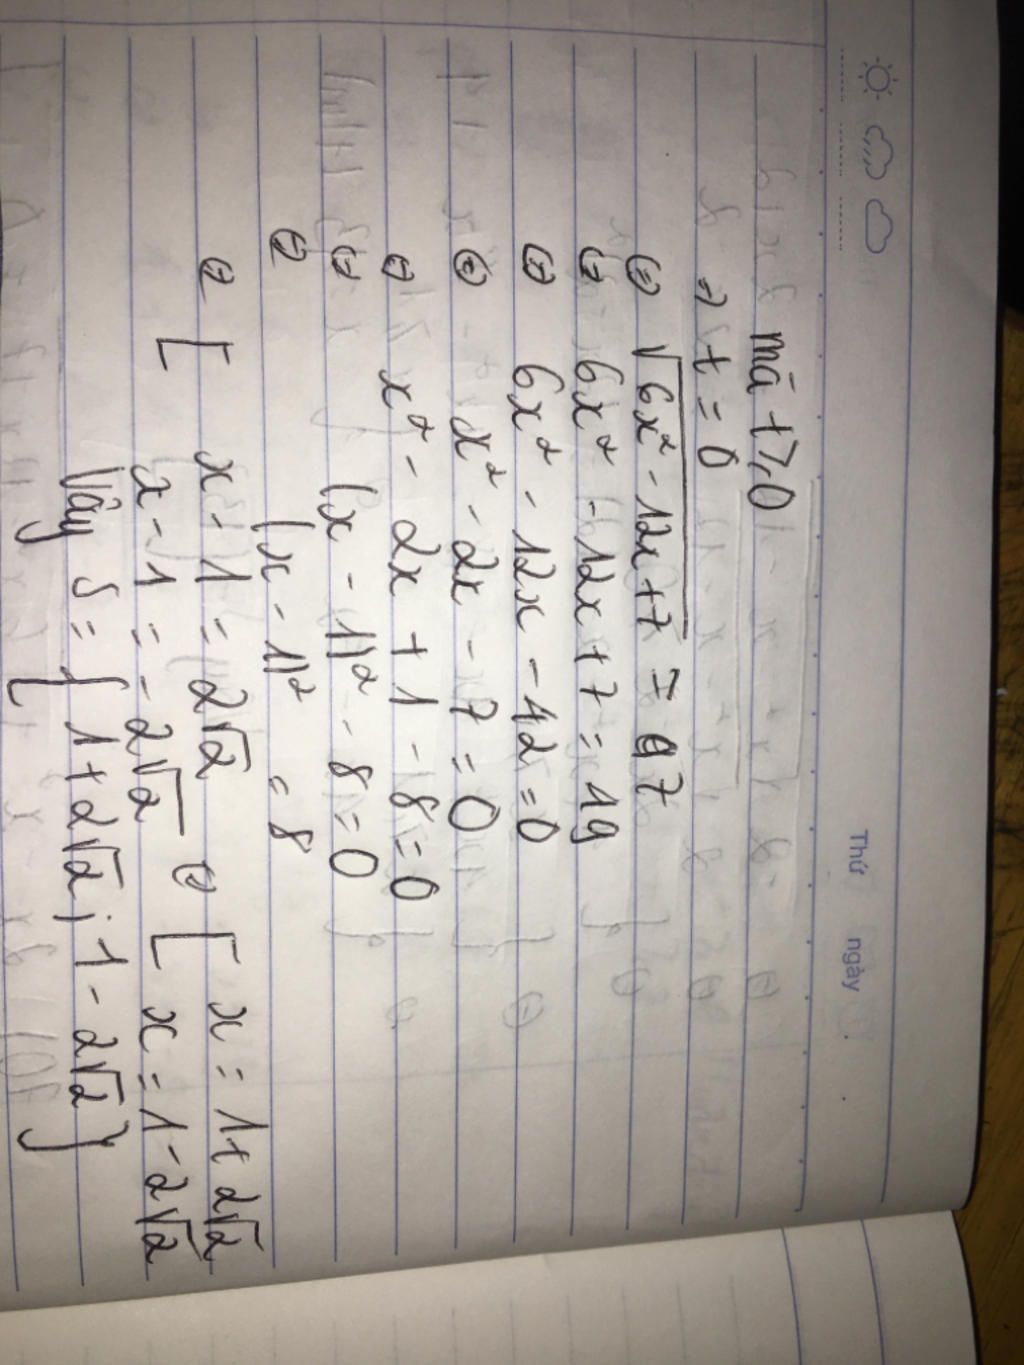 Thứ
ngày
mà t ≥ 0
=> t = 0
<=> √(6x² - 12x + 7) = 7
<=> 6x² - 12x + 7 = 49
<=> 6x² - 12x - 42 = 0
<=> x² - 2x - 7 = 0
<=> x² - 2x + 1 - 8 = 0
<=> (x - 1)² - 8 = 0
<=> (x - 1)² = 8
<=> [ x - 1 = 2√2 <=> [ x = 1 + 2√2
x - 1 = -2√2 x = 1 - 2√2
Vậy S = { 1 + 2√2 ; 1 - 2√2 }